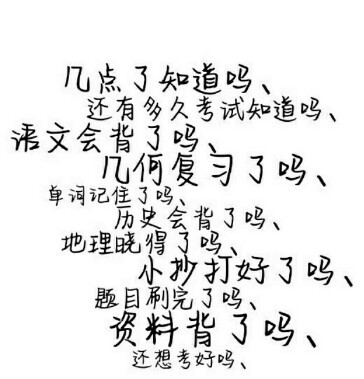 几点了知道吗、
还有多久考试知道吗、
语文会背了吗、
几何复习了吗、
单词记住了吗、
历史会背了吗、
地理晓得了吗、
小抄打好了吗、
题目刷完了吗、
资料背了吗、
还想考好吗、